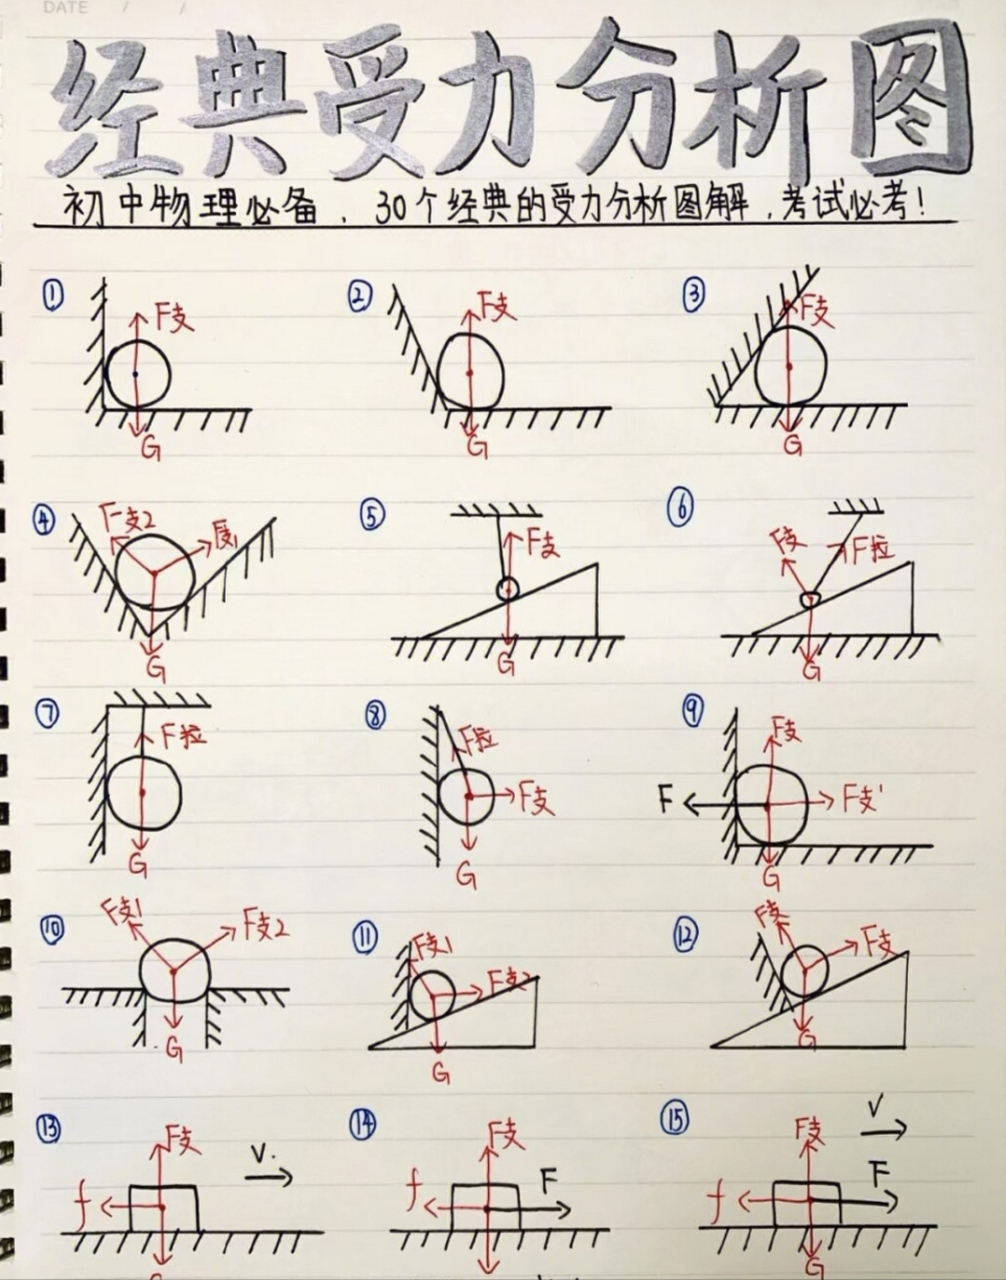 DATE / /
经典受力分析图
初中物理必备、30个经典的受力分析图解,考试必考!
① F支 G
② F支 G
③ F支 G
④ F支2 G
⑤ F支 G
⑥ F支 F拉 G
⑦ F拉 G
⑧ F拉 F支 G
⑨ F支 F F支' G
⑩ F支1 F支2 G
⑪ F支1 F支2 G
⑫ F支 F支 G
⑬ F支 V. f G
⑭ F支 f F
⑮ F支 V f F G